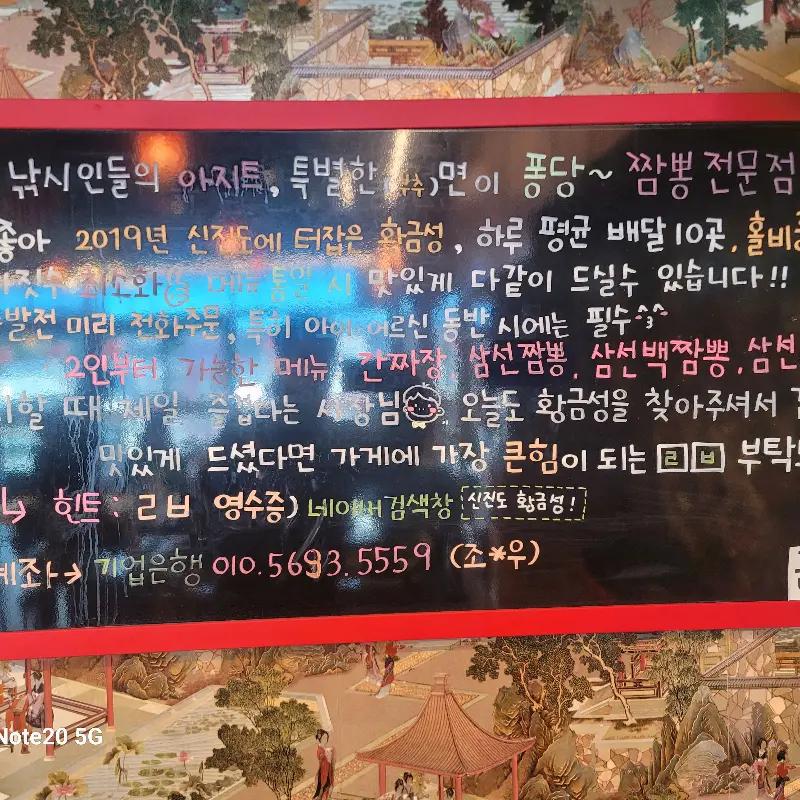 낚시인들의 아지트, 특별한(부추)면이 퐁당~ 짬뽕전문점
좋아 2019년 신진도에 터잡은 황금성, 하루 평균 배달10곳, 홀비중
가짓수 최소화 메뉴통일 시 맛있게 다같이 드실수 있습니다!!
발전 미리 전화주문, 특히 아이 어르신 동반 시에는 필수^3^
2인부터 가능한 메뉴 간짜장, 삼선짬뽕, 삼선백짬뽕, 삼선
할 때 제일 즐겁다는 사장님 오늘도 황금성을 찾아주셔서
맛있게 드셨다면 가게에 가장 큰힘이 되는 ㄹㅂ 부탁
↳ 힌트: ㄹㅂ 영수증) 네이버검색창 신진도 황금성!
계좌→ 기업은행 010.5693.5559 (조*우)
Note20 5G